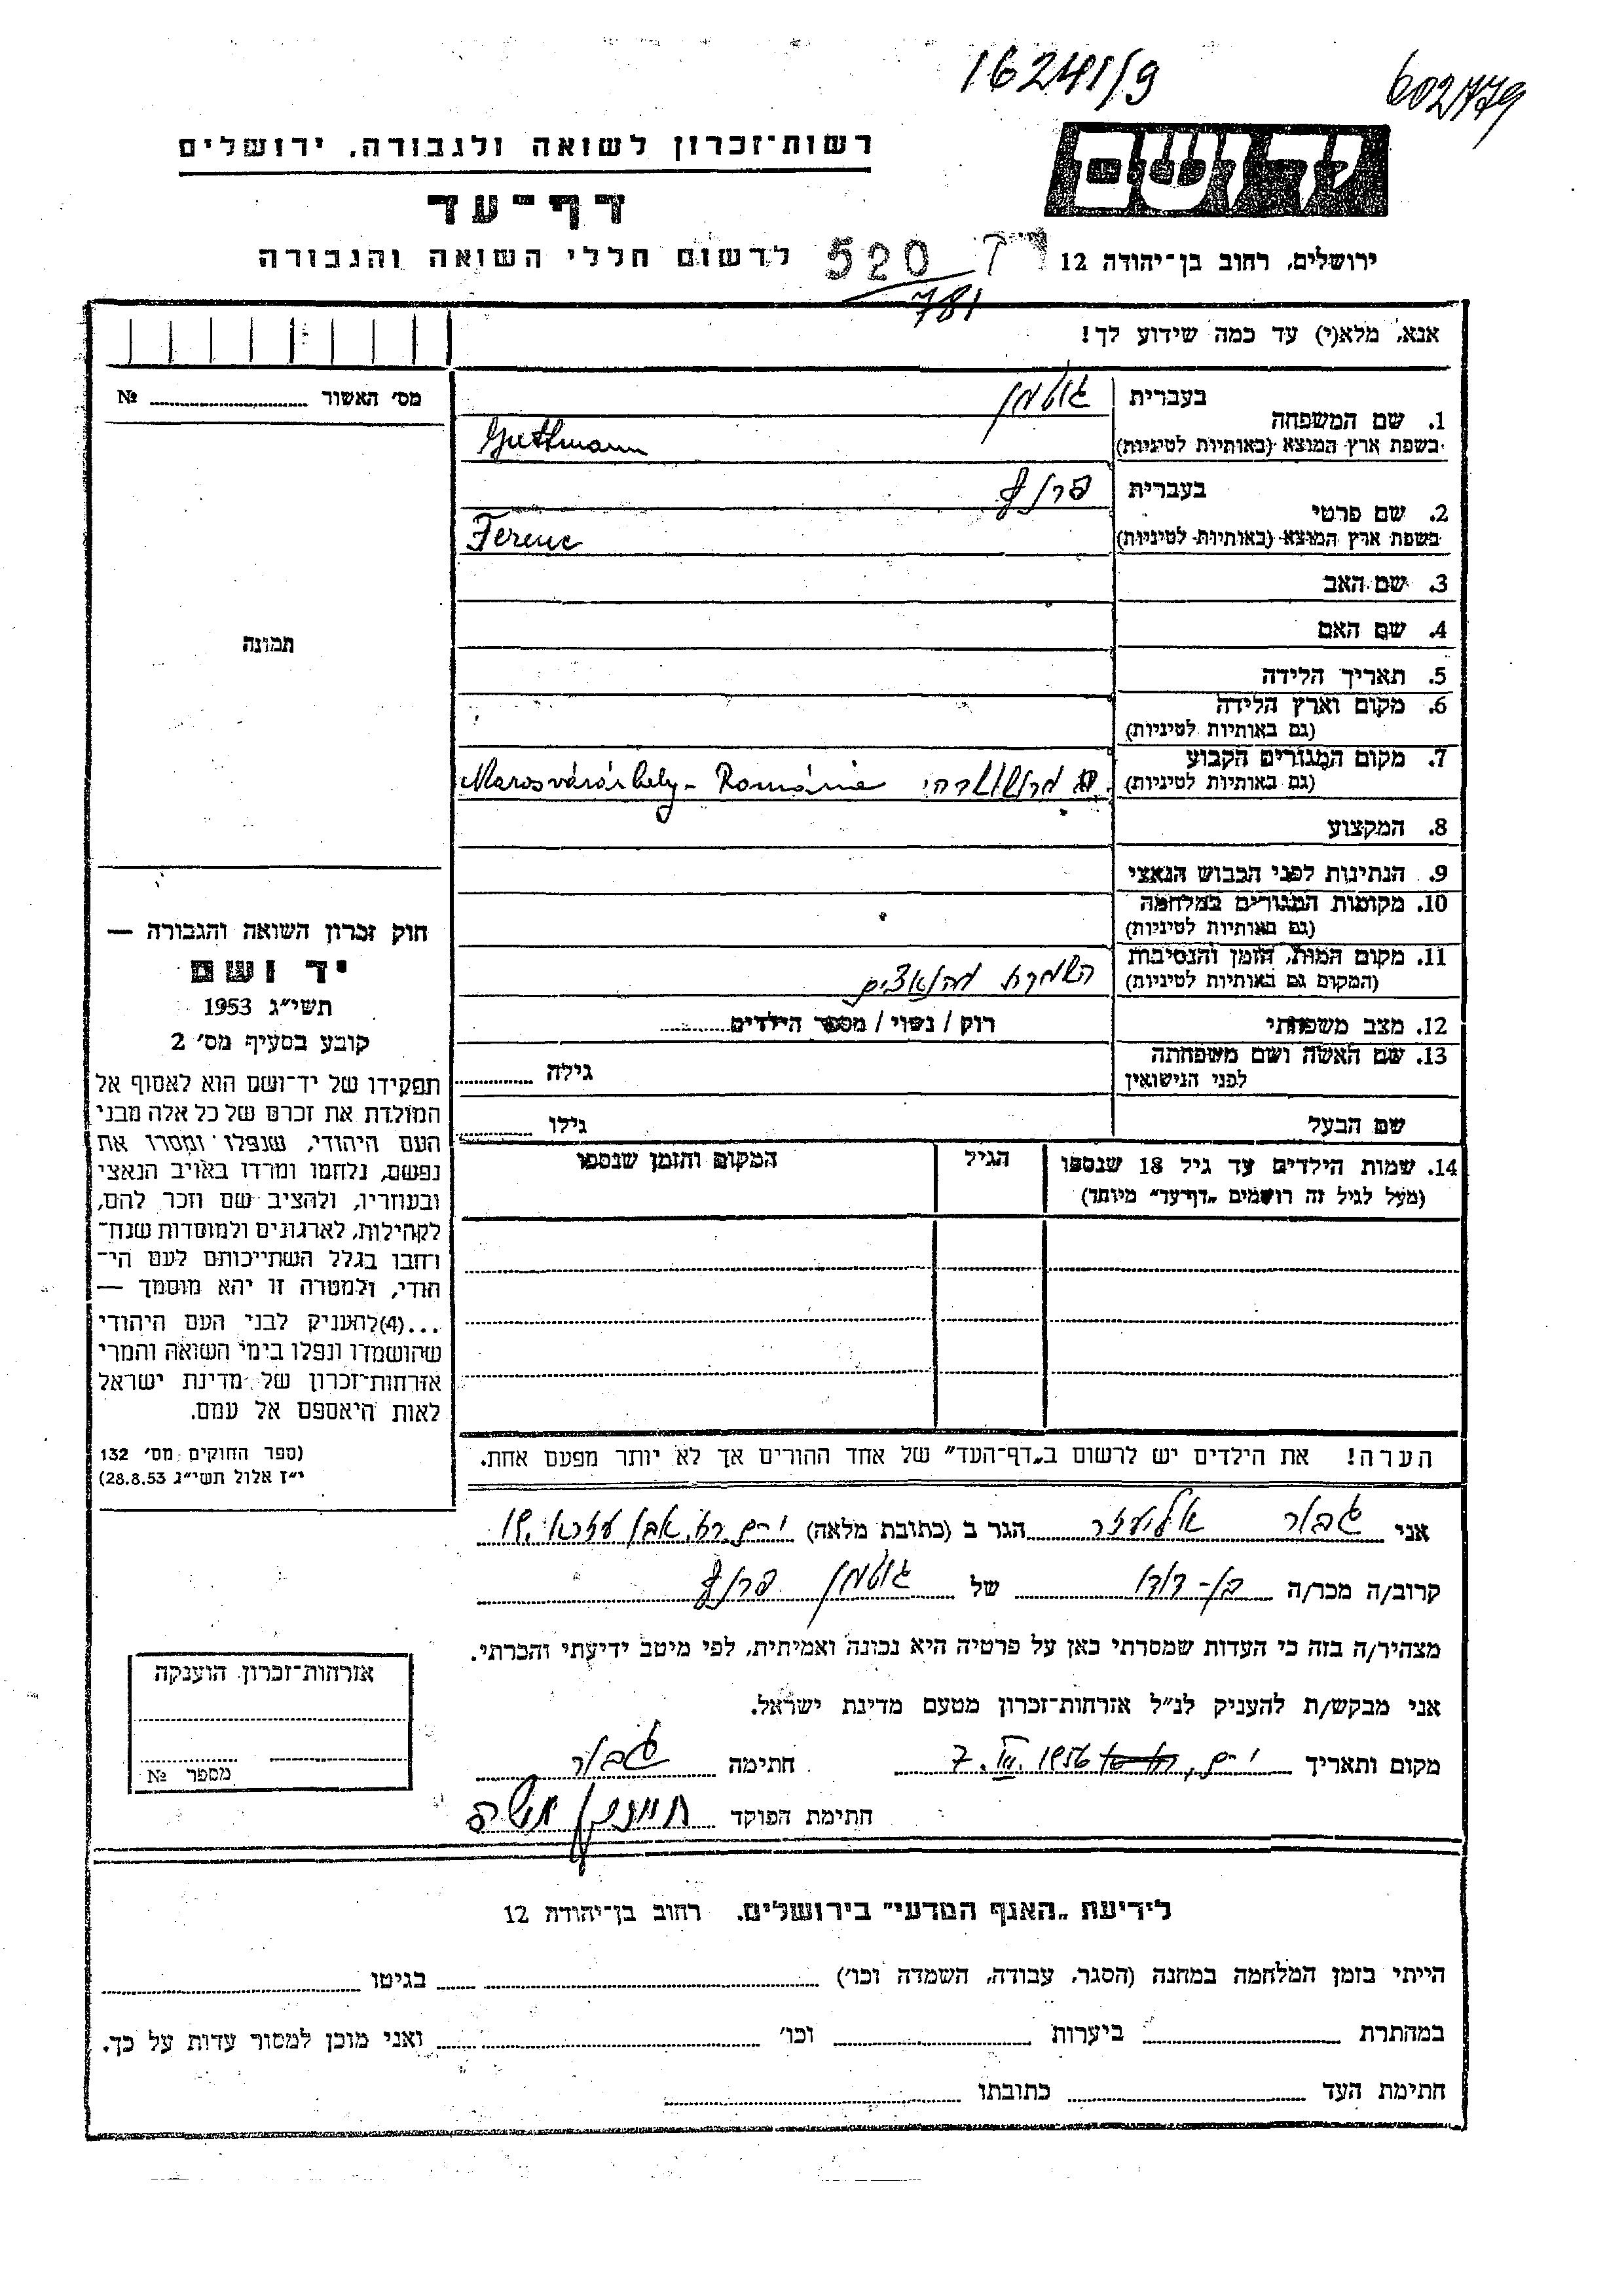 16241/9
602/779
רשות־זכרון לשואה ולגבורה, ירושלים
יד ושם
דף־עד
לרשום חללי השואה והגבורה
520
781
ירושלים, רחוב בן־יהודה 12
אנא, מלא(י) עד כמה שידוע לך!
מס׳ האשור № ........
1. שם המשפחה
בעברית גוטמן
בשפת ארץ המוצא (באותיות לטיניות) Guthmann
2. שם פרטי
בעברית פרנץ
בשפת ארץ המוצא (באותיות לטיניות) Ferenc
3. שם האב
4. שם האם
תמונה
5. תאריך הלידה
6. מקום וארץ הלידה
(גם באותיות לטיניות)
7. מקום המגורים הקבוע
(גם באותיות לטיניות)
Marosvásárhely - Románia
8. המקצוע
9. הנתינות לפני הכבוש הנאצי
10. מקומות המגורים במלחמה
(גם באותיות לטיניות)
11. מקום המות, הזמן והנסיבות
(המקום גם באותיות לטיניות)
מהנאצים
12. מצב משפחתי רוק / נשוי / מספר הילדים........
13. שם האשה ושם משפחתה
לפני הנישואין
גילה ........
שם הבעל גילו ........
14. שמות הילדים עד גיל 18 שנספו
(מעל לגיל זה רושמים „דף־עד״ מיוחד)
הגיל
המקום והזמן שנספו
חוק זכרון השואה והגבורה —
יד ושם
תשי״ג 1953
קובע בסעיף מס׳ 2
תפקידו של יד־ושם הוא לאסוף אל
המולדת את זכרם של כל אלה מבני
העם היהודי, שנפלו ומסרו את
נפשם, נלחמו ומרדו באויב הנאצי
ובעוזריו, ולהציב שם וזכר להם,
לקהילות, לארגונים ולמוסדות שנח־
רחבו בגלל השתייכותם לעם הי־
הודי, ולמטרה זו יהא מוסמך —
...(4)להעניק לבני העם היהודי
שהושמדו ונפלו בימי השואה והמרי
אזרחות־זכרון של מדינת ישראל
לאות היאספם אל עמם.
(ספר החוקים מס׳ 132
י״ז אלול תשי״ג 28.8.53)
הערה! את הילדים יש לרשום ב„דף־העד״ של אחד ההורים אך לא יותר מפעם אחת.
אני גבור אליעזר הגר ב (כתובת מלאה) י־ם רח׳ אבן עזרא 19
קרוב/ה מכר/ה בן-דודו של גוטמן פרנץ
מצהיר/ה בזה כי העדות שמסרתי כאן על פרטיה היא נכונה ואמיתית, לפי מיטב ידיעתי והכרתי.
אני מבקש/ת להעניק לנ״ל אזרחות־זכרון מטעם מדינת ישראל.
מקום ותאריך י־ם, 7. III. 1956 חתימה גבור
חתימת הפוקד
אזרחות־זכרון הוענקה
מספר №
לידיעת „האגף המדעי״ בירושלים, רחוב בן־יהודה 12
הייתי בזמן המלחמה במחנה (הסגר, עבודה, השמדה וכו׳) ........ בגיטו ........
במהתרת ........ ביערות ........ וכו׳ ........ ואני מוכן למסור עדות על כך.
חתימת העד ........ כתובתו ........